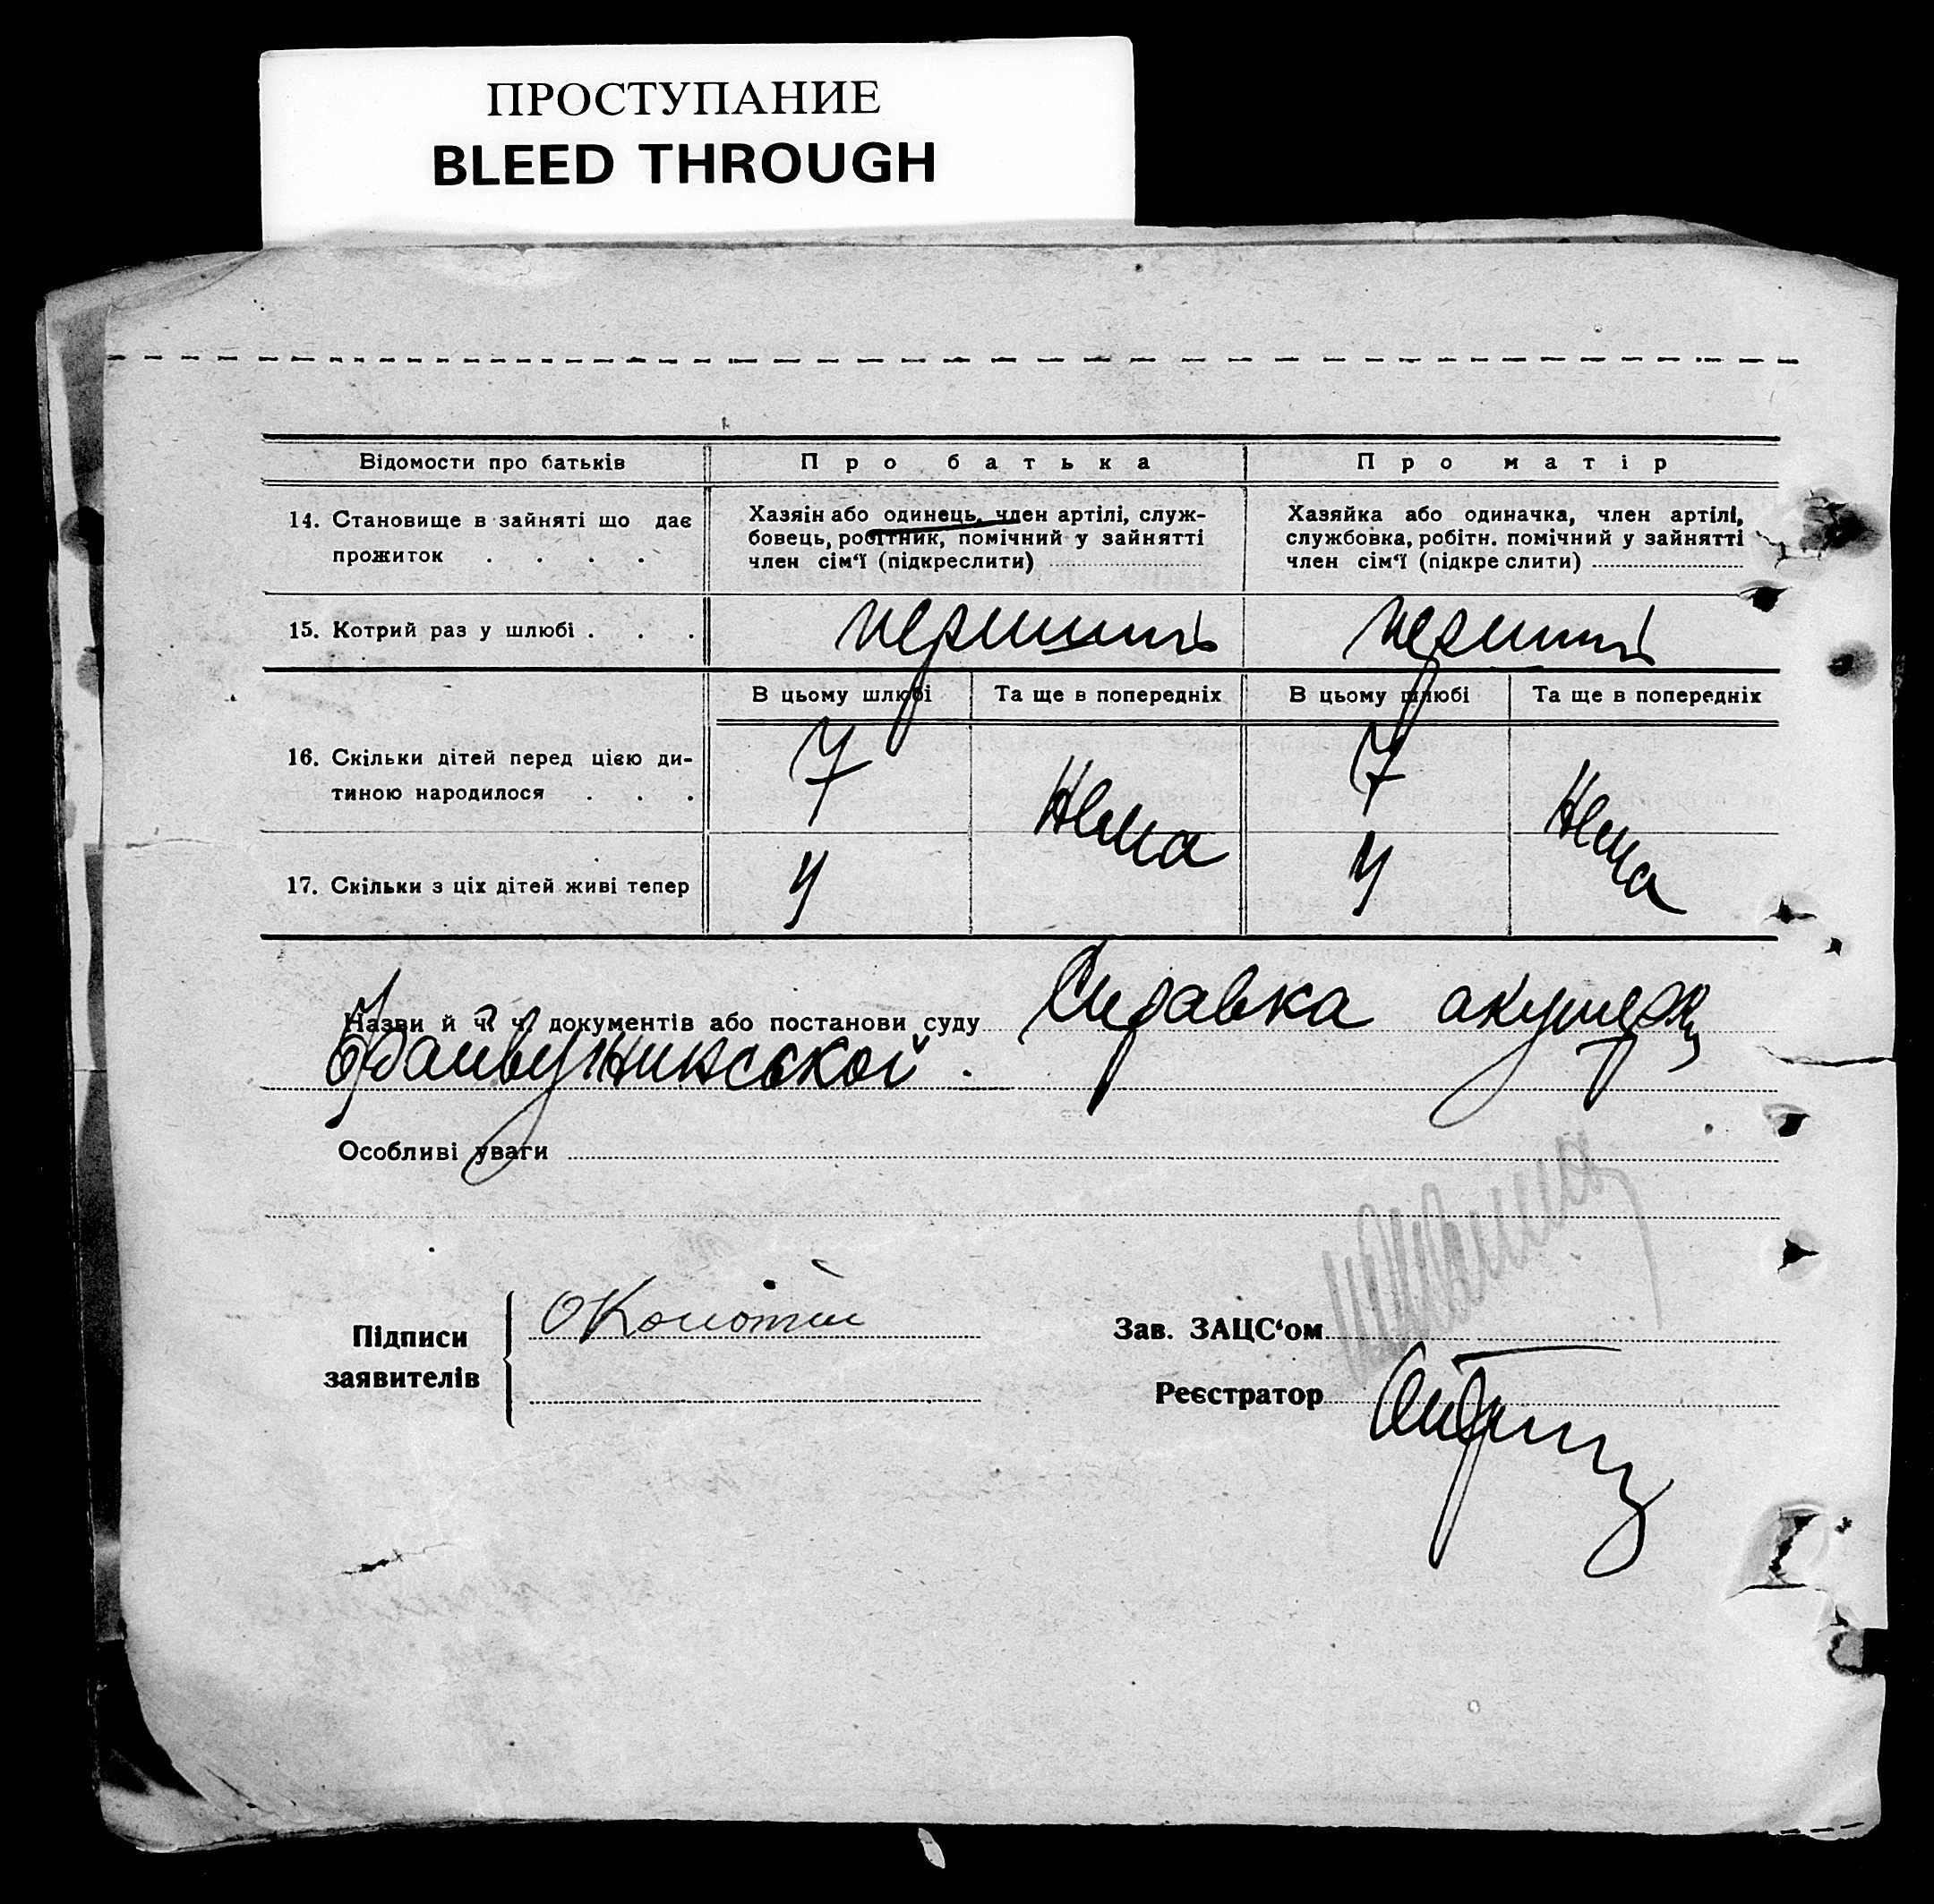 ПРОСТУПАНИЕ
BLEED THROUGH
Відомости про батьків
Про батька
Про матір
14. Становище в зайняті що дає
прожиток . . . .
Хазяін або одинець, член артілі, служ-
бовець, робітник, помічний у зайнятті
член сім‘ї (підкреслити)
Хазяйка або одиначка, член артілі,
службовка, робітн. помічний у зайнятті
член сім‘ї (підкре слити)
15. Котрий раз у шлюбі . . .
перший
перший
В цьому шлюбі
Та ще в попередніх
В цьому шлюбі
Та ще в попередніх
16. Скільки дітей перед цією ди-
тиною народилося . . .
7
Нема
7
Нема
17. Скільки з ціх дітей живі тепер
4
4
Назви й ч. ч. документів або постанови суду Справка акушерки
Особливі уваги
Підписи
заявителів
Зав. ЗАЦС‘ом
Реєстратор